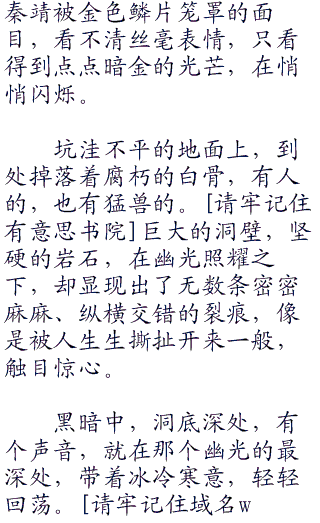 秦靖被金色鳞片笼罩的面
目，看不清丝毫表情，只看
得到点点暗金的光芒，在悄
悄闪烁。
坑洼不平的地面上，到
处掉落着腐朽的白骨，有人
的，也有猛兽的。[请牢记住
有意思书院]巨大的洞壁，坚
硬的岩石，在幽光照耀之
下，却显现出了无数条密密
麻麻、纵横交错的裂痕，像
是被人生生撕扯开来一般，
触目惊心。
黑暗中，洞底深处，有
个声音，就在那个幽光的最
深处，带着冰冷寒意，轻轻
回荡。[请牢记住域名w